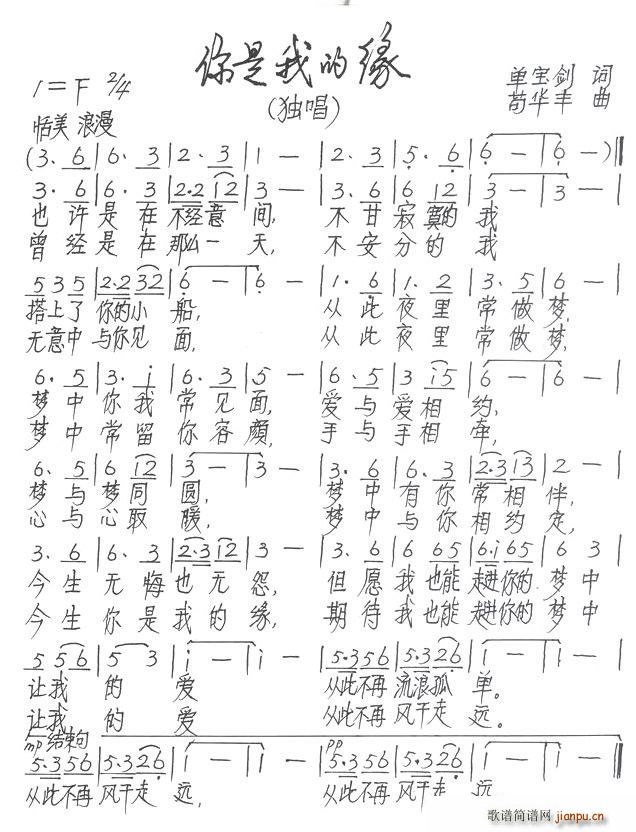 你是我的缘
(独唱)
1=F 2/4
单宝剑 词
苟华丰 曲
恬美 浪漫
(3. 6 | 6. 3 | 2. 3 | 1 — | 2. 3 | 5. 6 | 6 — | 6 —)
3. 6 | 6. 3 | 2·2 12 | 3 — | 3. 6 | 6 12 | 3 — | 3 — |
也许是在不经意间, 不甘寂寞的我
曾经是在那么一天, 不安分的我
5 3 5 | 2·2 32 | 6 — | 6 — | 1. 6 | 1. 2 | 3. 5 | 6 — |
搭上了你的小船, 从此夜里常做梦,
无意中与你见面, 从此夜里常做梦,
6. 5 | 3. i | 6. 3 | 5 — | 6. 5 | 3 i5 | 6 — | 6 — |
梦中你我常见面, 爱与爱相约,
梦中常留你容颜, 手与手相牵,
6. 5 | 6 i2 | 3 — | 3 — | 3. 6 | 6. 3 | 2·3 i3 | 2 — |
梦与梦同圆, 梦中有你常相伴,
心与心取暖, 梦中与你相约定,
3. 6 | 6. 3 | 2·3 12 | 3 — | 3. 6 | 6 65 | 6·i 65 | 6 3
今生无悔也无怨, 但愿我也能走进你的梦中
今生你是我的缘, 期待我也能走进你的梦中
5 56 | 5 3 | i — | i — | 5·3 56 | 5·3 26 | 1 — | 1 — |
让我的爱 从此不再流浪孤单。
让我的爱 从此不再风干走远。
mp 结束句 pp
5·3 56 | 5·3 26 | 1 — | 1 — | 5·3 56 | 5·3 26 | 1 — | 1 —
从此不再风干走远, 从此不再风干走远
歌谱简谱网
jianpu.cn